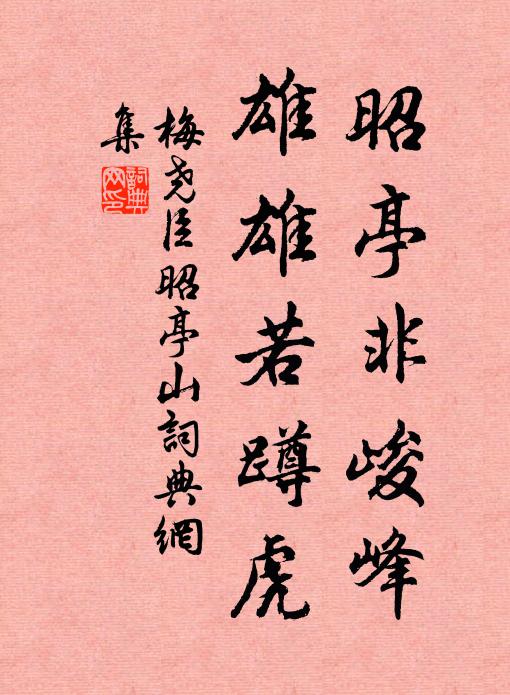 昭亭非峻峰
雄雄若蹲虎
梅尧臣昭亭山詞典網
集
詞典
网印